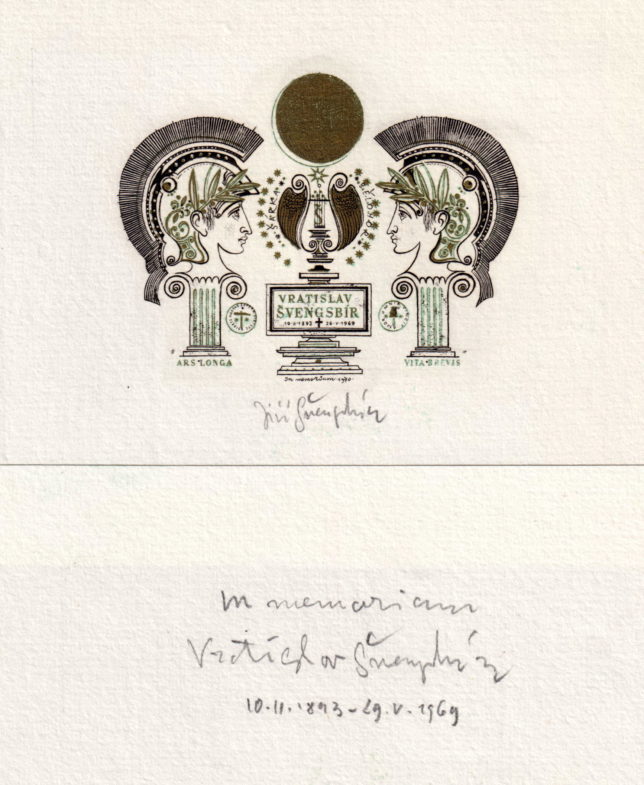 VRATISLAV
ŠVENGSBÍR
10·II·1893 † 29·V·1969
ARS·LONGA VITA·BREVIS
In memoriam 1970
Jiří Švengsbír
In memoriam
Vratislav Švengsbír
10.II.1893-29.V.1969